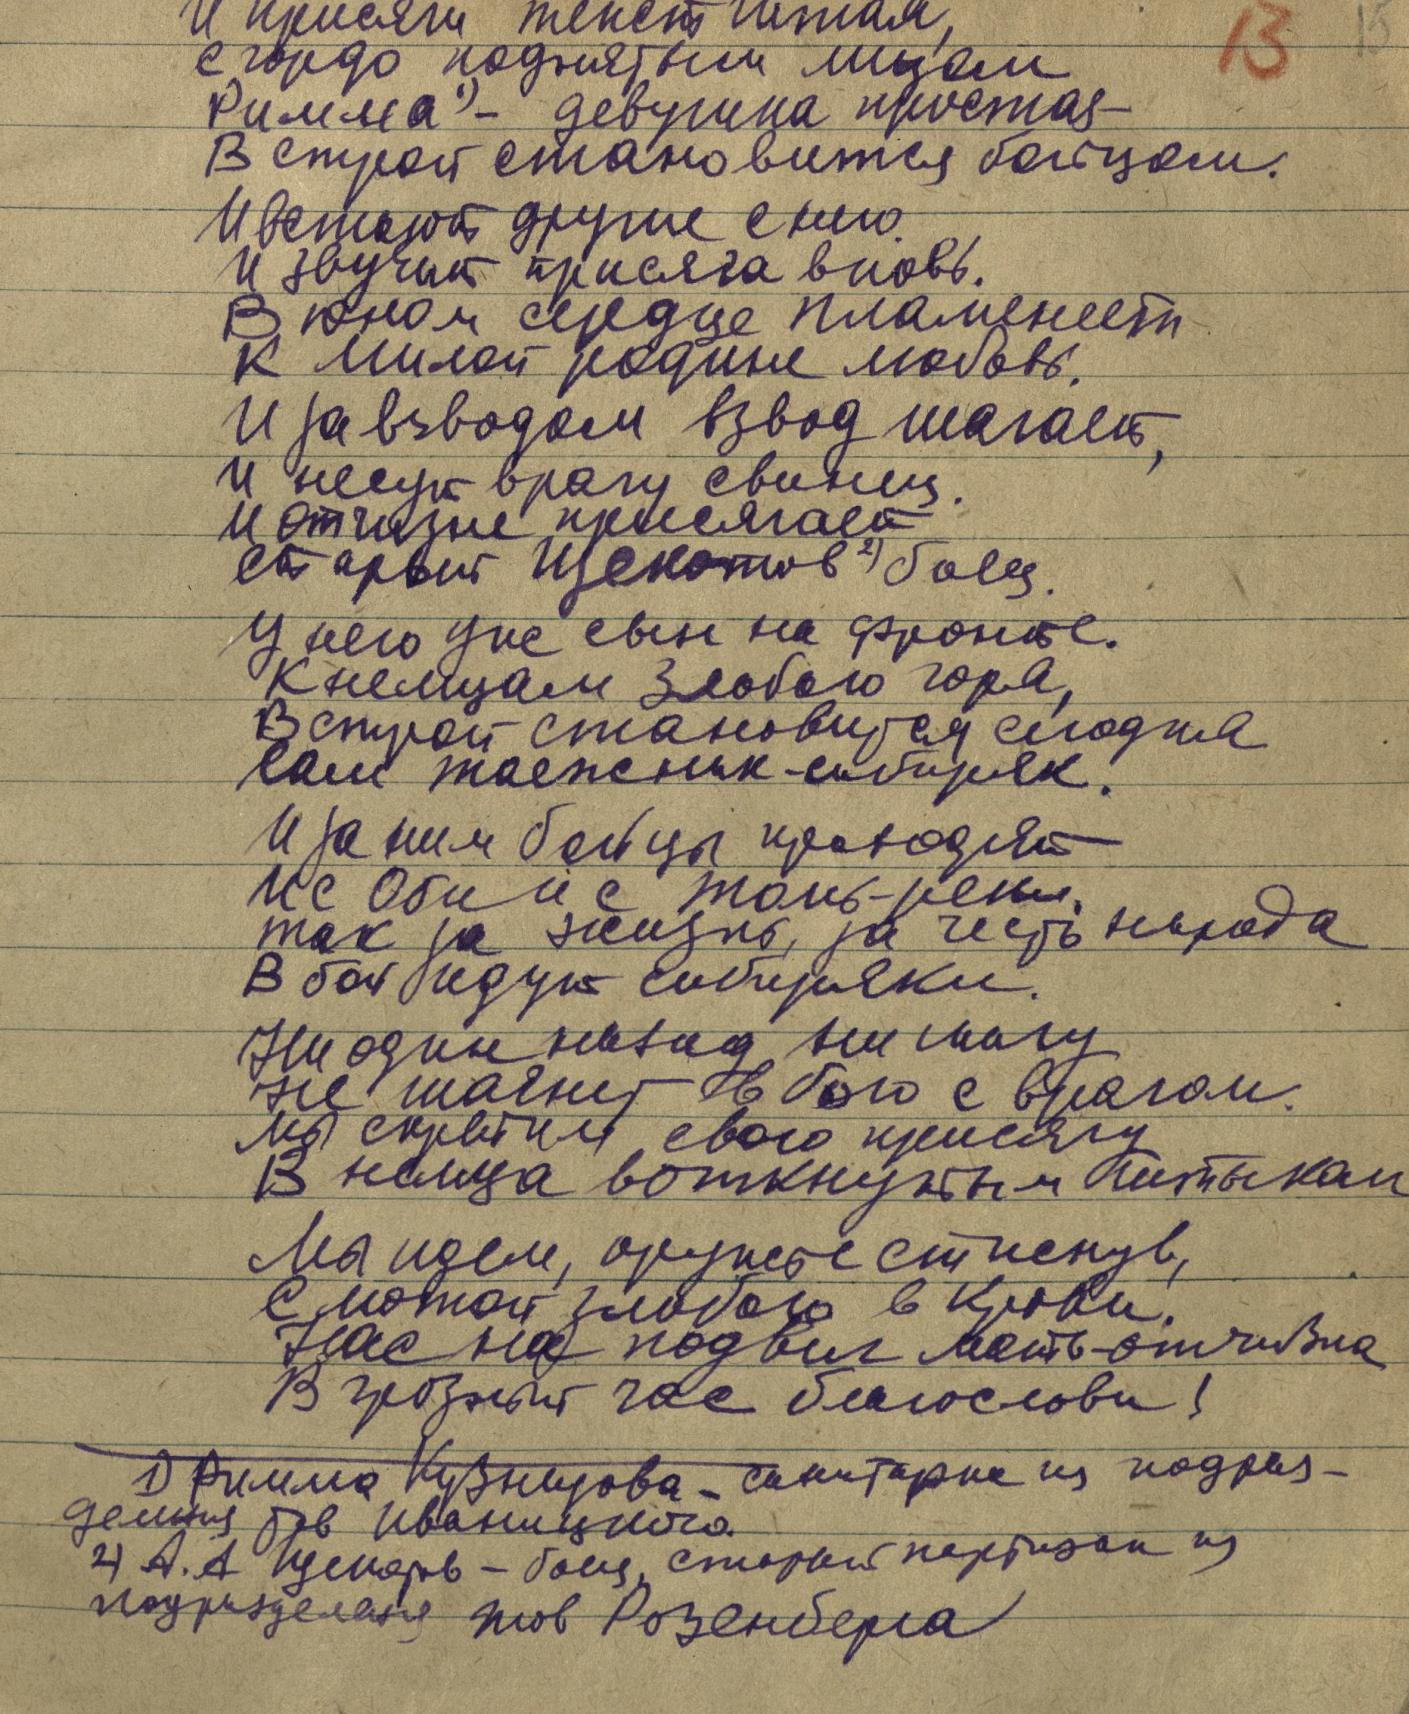 И присяги текст читая,
С гордо поднятым лицом
Римма 1) - девушка простая -
В строй становится бойцом.
И встают другие с нею.
И звучит присяга вновь.
В юном сердце пламенеет
К милой родине любовь.
И за взводом взвод шагает,
И несут врагу свинец.
И отчизне присягает
Старый Щекотов 2) боец.
У него уже сын на фронте.
К немцам злобою горя,
В строй становится сегодня
Сам таежник-сибиряк.
И за ним бойцы проходят
И с Оби и с Томь-реки.
Так за жизнь, за честь народа
В бой идут сибиряки.
Ни один назад ни шагу
Не шагнет в бою с врагом.
Мы скрепим свою присягу
В немца воткнутым штыком
Мы идем, оружье стиснув,
С лютой злобою в крови.
Нас на подвиг мать-отчизна
В грозный час благослови!
1) Римма Кузнецова - санитарка из подраз-
деления тов Иваницкого.
2) А. А Щекотов - боец, старый партизан из
подразделения тов Розенберга
13
15